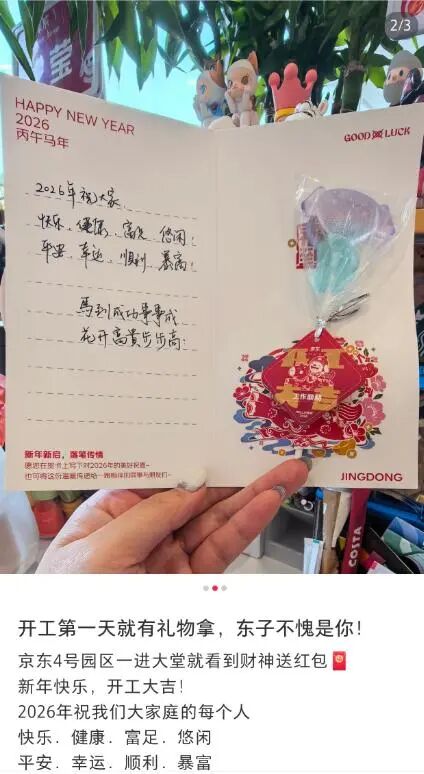 2/3
HAPPY NEW YEAR
2026
丙午马年
GOOD LUCK
2026年祝大家
快乐、健康、富足、悠闲!
平安、幸运、顺利、暴富!
馬到成功事事成
花开富貴步步高!
新年新启,落笔传情
愿您在贺卡上写下对2026年的美好祝愿~
开工
大吉
JINGDONG
COSTA
开工第一天就有礼物拿,东子不愧是你!
京东4号园区一进大堂就看到财神送红包🧧
新年快乐,开工大吉!
2026年祝我们大家庭的每个人
快乐.健康.富足.悠闲
平安.幸运.顺利.暴富